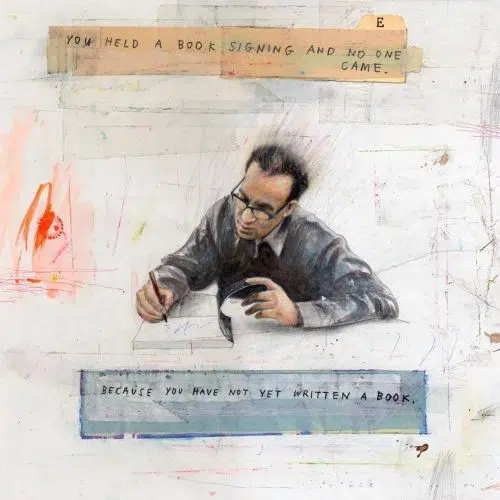 E
YOU HELD A BOOK SIGNING AND NO ONE
CAME.
BECAUSE YOU HAVE NOT YET WRITTEN A BOOK.